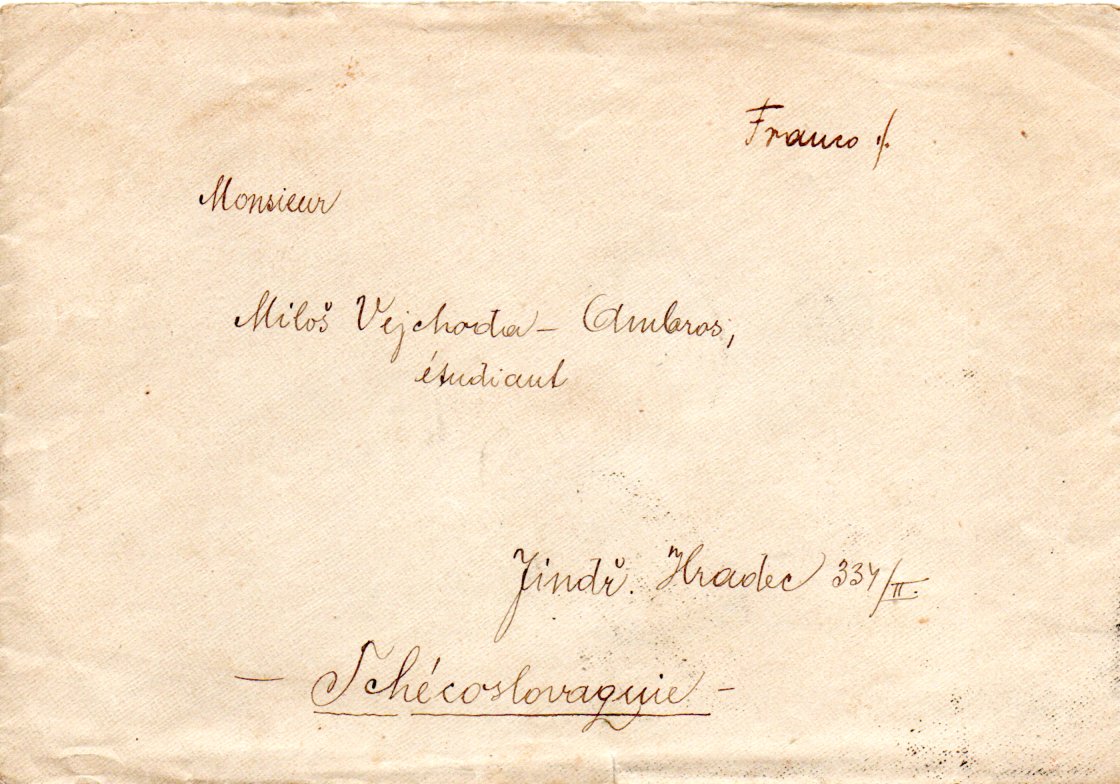 Franco ./.
Monsieur
Miloš Vejchoda - Ambros,
étudiant
Jindř. Hradec 334/II.
- Tchécoslovaquie -